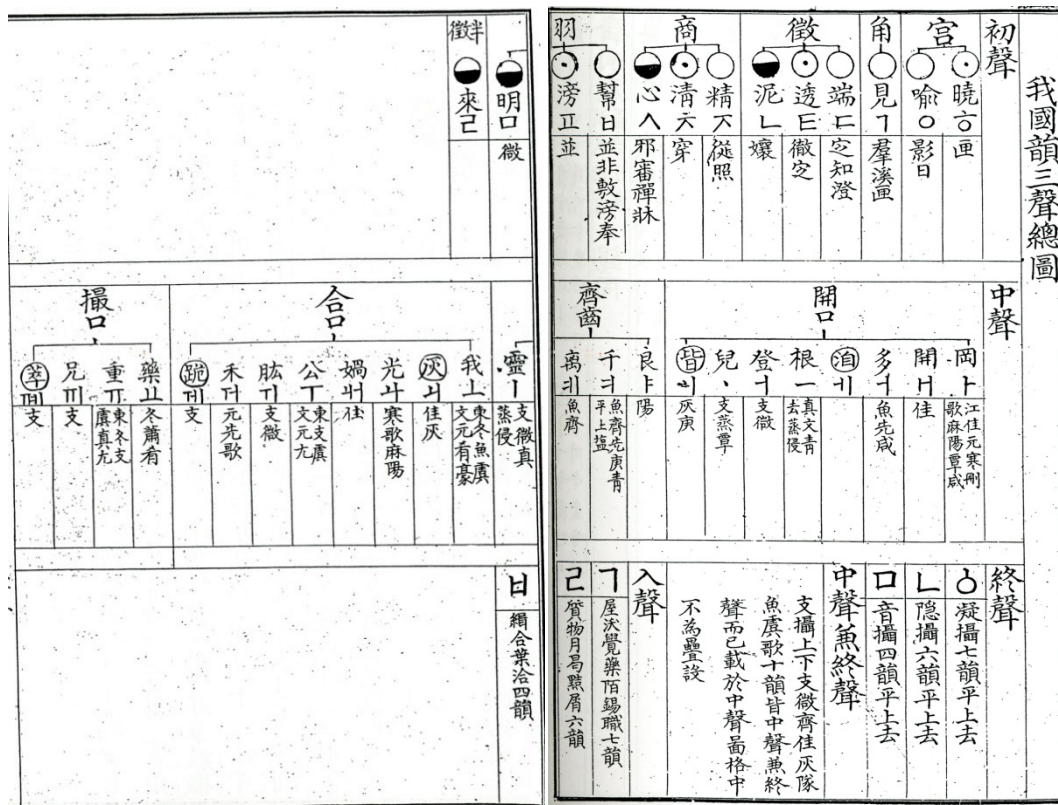 我國韻三聲總圖
初聲
宮 角 徵 商 羽
曉ㆆ 匣
喻ㅇ 影日
見ㄱ 羣溪匣
端ㄷ 定知澄
透ㅌ 徹定
泥ㄴ 孃
精ㅈ 從照
淸ㅊ 穿
心ㅅ 邪審禪牀
幫ㅂ 並非敷滂奉
滂ㅍ 並
明ㅁ 微
半徵
來ㄹ
中聲
開口ㅏ
岡ㅏ 江佳元寒刪歌麻陽覃咸
開ㅐ 佳
多ㅓ 魚先咸
洎ㅔ
根ㅡ 眞文青去蒸侵
登ㅓ 支微
兒ㆍ 支蒸覃
皆ㆎ 灰庚
齊齒ㅣ
良ㅑ 陽
千ㅕ 魚齊先庚青平上塩
离ㅖ 魚齊
靈ㅣ 支微真蒸侵
合口
我ㅗ 東冬魚虞文元肴豪
灰ㅚ 佳灰
光ㅘ 寒歌麻陽
媧ㅙ 佳
公ㅜ 東支虞文元尤
肱ㅟ 支微
禾ㅝ 元先歌
跪ㅞ 支
撮口
藥ㅛ 冬蕭肴
重ㅠ 東冬支虞真尤
兄ㆌ 支
支
終聲
ㆁ 凝攝七韻平上去
ㄴ 隐攝六韻平上去
ㅁ 音攝四韻平上去
中聲兼終聲
支攝上下支微齊佳灰隊
魚虞歌十韻皆中聲兼終
聲而已載於中聲啚格中
不為疊設
入聲
ㄱ 屋沃覺藥陌錫職七韻
ㄹ 質物月曷黠屑六韻
ㅂ 緝合葉洽四韻